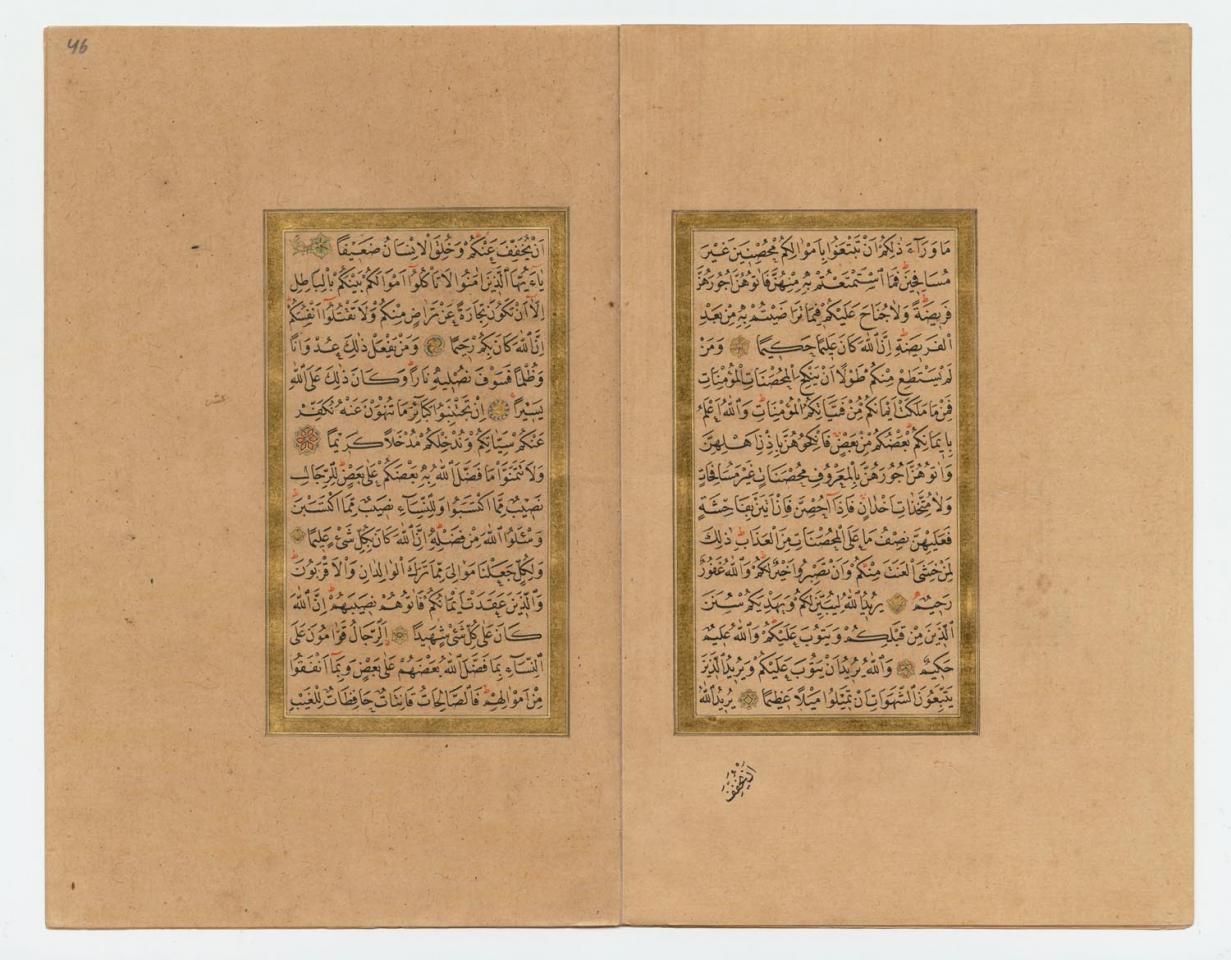 مَا وَرَآءَ ذٰلِكُمْ اَنْ تَبْتَغُوا بِاَمْوَالِكُمْ مُحْصِنِينَ غَيْرَ
مُسَافِحِينَ فَمَا اسْتَمْتَعْتُمْ بِهِ مِنْهُنَّ فَاٰتُوهُنَّ اُجُورَهُنَّ
فَرِيضَةً وَلَا جُنَاحَ عَلَيْكُمْ فِيمَا تَرَاضَيْتُمْ بِهِ مِنْ بَعْدِ
الْفَرِيضَةِ اِنَّ اللّٰهَ كَانَ عَلِيمًا حَكِيمًا وَمَنْ
لَمْ يَسْتَطِعْ مِنْكُمْ طَوْلًا اَنْ يَنْكِحَ الْمُحْصَنَاتِ الْمُؤْمِنَاتِ
فَمِنْ مَا مَلَكَتْ اَيْمَانُكُمْ مِنْ فَتَيَاتِكُمُ الْمُؤْمِنَاتِ وَاللّٰهُ اَعْلَمُ
بِاِيمَانِكُمْ بَعْضُكُمْ مِنْ بَعْضٍ فَانْكِحُوهُنَّ بِاِذْنِ اَهْلِهِنَّ
وَاٰتُوهُنَّ اُجُورَهُنَّ بِالْمَعْرُوفِ مُحْصَنَاتٍ غَيْرَ مُسَافِحَاتٍ
وَلَا مُتَّخِذَاتِ اَخْدَانٍ فَاِذَا اُحْصِنَّ فَاِنْ اَتَيْنَ بِفَاحِشَةٍ
فَعَلَيْهِنَّ نِصْفُ مَا عَلَى الْمُحْصَنَاتِ مِنَ الْعَذَابِ ذٰلِكَ
لِمَنْ خَشِيَ الْعَنَتَ مِنْكُمْ وَاَنْ تَصْبِرُوا خَيْرٌ لَكُمْ وَاللّٰهُ غَفُورٌ
رَحِيمٌ يُرِيدُ اللّٰهُ لِيُبَيِّنَ لَكُمْ وَيَهْدِيَكُمْ سُنَنَ
الَّذِينَ مِنْ قَبْلِكُمْ وَيَتُوبَ عَلَيْكُمْ وَاللّٰهُ عَلِيمٌ
حَكِيمٌ وَاللّٰهُ يُرِيدُ اَنْ يَتُوبَ عَلَيْكُمْ وَيُرِيدُ الَّذِينَ
يَتَّبِعُونَ الشَّهَوَاتِ اَنْ تَمِيلُوا مَيْلًا عَظِيمًا يُرِيدُ اللّٰهُ
اَنْ يُخَفِّفَ
46
اَنْ يُخَفِّفَ عَنْكُمْ وَخُلِقَ الْاِنْسَانُ ضَعِيفًا
يَاءَيُّهَا الَّذِينَ اٰمَنُوا لَا تَأْكُلُوا اَمْوَالَكُمْ بَيْنَكُمْ بِالْبَاطِلِ
اِلَّا اَنْ تَكُونَ تِجَارَةً عَنْ تَرَاضٍ مِنْكُمْ وَلَا تَقْتُلُوا اَنْفُسَكُمْ
اِنَّ اللّٰهَ كَانَ بِكُمْ رَحِيمًا وَمَنْ يَفْعَلْ ذٰلِكَ عُدْوَانًا
وَظُلْمًا فَسَوْفَ نُصْلِيهِ نَارًا وَكَانَ ذٰلِكَ عَلَى اللّٰهِ
يَسِيرًا اِنْ تَجْتَنِبُوا كَبَائِرَ مَا تُنْهَوْنَ عَنْهُ نُكَفِّرْ
عَنْكُمْ سَيِّئَاتِكُمْ وَنُدْخِلْكُمْ مُدْخَلًا كَرِيمًا
وَلَا تَتَمَنَّوْا مَا فَضَّلَ اللّٰهُ بِهِ بَعْضَكُمْ عَلَى بَعْضٍ لِلرِّجَالِ
نَصِيبٌ مِمَّا اكْتَسَبُوا وَلِلنِّسَاءِ نَصِيبٌ مِمَّا اكْتَسَبْنَ
وَسْئَلُوا اللّٰهَ مِنْ فَضْلِهِ اِنَّ اللّٰهَ كَانَ بِكُلِّ شَيْءٍ عَلِيمًا
وَلِكُلٍّ جَعَلْنَا مَوَالِيَ مِمَّا تَرَكَ الْوَالِدَانِ وَالْاَقْرَبُونَ
وَالَّذِينَ عَقَدَتْ اَيْمَانُكُمْ فَاٰتُوهُمْ نَصِيبَهُمْ اِنَّ اللّٰهَ
كَانَ عَلَى كُلِّ شَيْءٍ شَهِيدًا اَلرِّجَالُ قَوَّامُونَ عَلَى
النِّسَاءِ بِمَا فَضَّلَ اللّٰهُ بَعْضَهُمْ عَلَى بَعْضٍ وَبِمَا اَنْفَقُوا
مِنْ اَمْوَالِهِمْ فَالصَّالِحَاتُ قَانِتَاتٌ حَافِظَاتٌ لِلْغَيْبِ